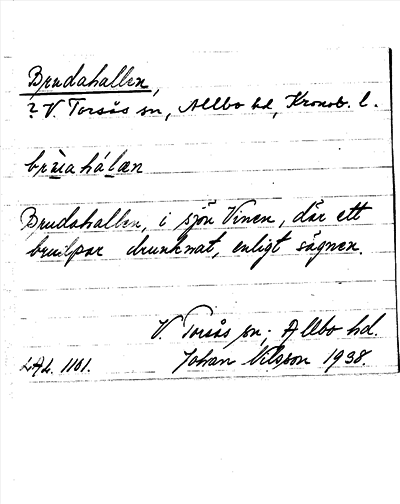 Brudahallen,
? V. Torsås sn, Allbo hd, Kronob. l.
brùa hálæn
Brudahallen, i sjön Vinen, där ett
brudpar drunknat, enligt sägnen.
V. Torsås sn; Allbo hd.
LAL. 1161. Johan Nilsson 1938.